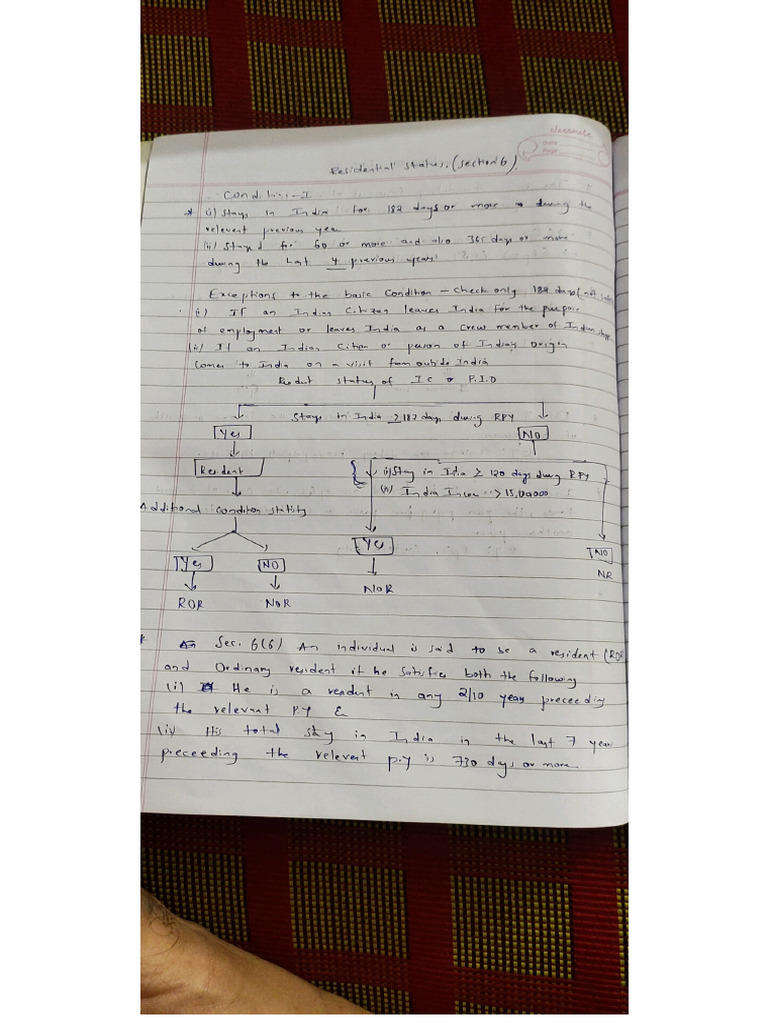 classmate
Date
Page
Residential Status. (Section 6).
Condition-I
* (i) Stays in India for 182 days or more during the
relevent previous year
(ii) Stayd for 60 or more and also 365 days or more
during the last 4 previous years
Exceptions to the basic condition - check only 182 days (not
(i) If an Indian Citizen leaves India for the purpose
of employment or leaves India as a crew member of Indian
(ii) If an Indian Citien or person of Indian Origin
comes to India on a visit from outside India
status of I C or P.I.O
Stays in India ≥ 182 days during RPY
Yes NO
Resident (i) Stay in India ≥ 120 days during RPY
(ii) India Incom > 15,00000
Additional condition
Yes NO NO
NOR NR
ROR NOR
* Sec. 6(6) An individual is said to be a resident (ROR
and Ordinary resident if he satisfies both the following
(i) He is a resdent in any 2/10 years preceeding
the relevant P.Y &
(ii) His total stay in India in the last 7 year
preceeding the relevent p.y is 730 days or more